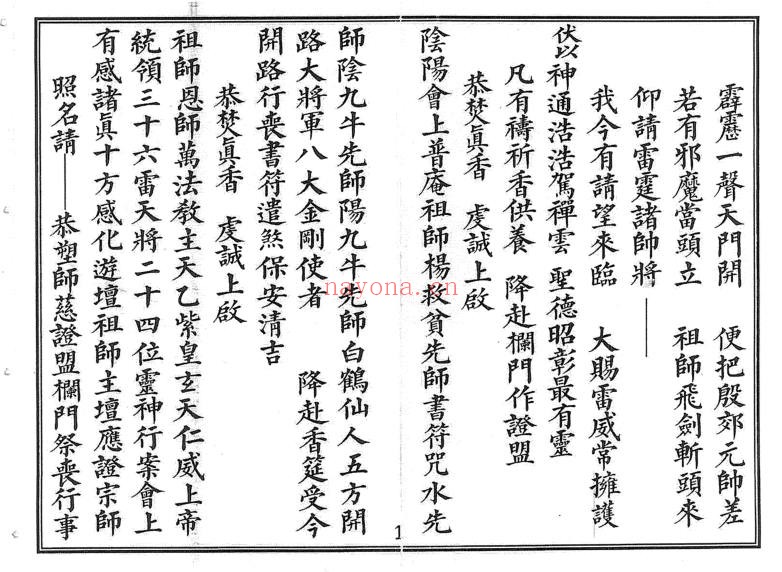 霹靂一聲天門開　便把殷郊元帥差
若有邪魔當頭立　祖師飛劍斬頭來
仰請雷霆諸帥將——
我今有請望來臨　大賜雷威常擁護
伏以神通浩浩駕禪雲 聖德昭彰最有靈
凡有禱祈香供養　降赴欄門作證盟
恭焚眞香　虔誠上啟
陰陽會上普庵祖師楊救貧先師書符咒水先
師陰九牛先師陽九牛先師白鶴仙人五方開
路大將軍八大金剛使者　降赴香筵受今
開路行喪書符遣煞保安清吉
恭焚眞香　虔誠上啟
祖師恩師萬法教主天乙紫皇玄天仁威上帝
統領三十六雷天將二十四位靈神行案會上
有感諸眞十方感化遊壇祖師主壇應證宗師
照名請——恭塑師慈證盟欄門祭喪行事
1
nayona.cn